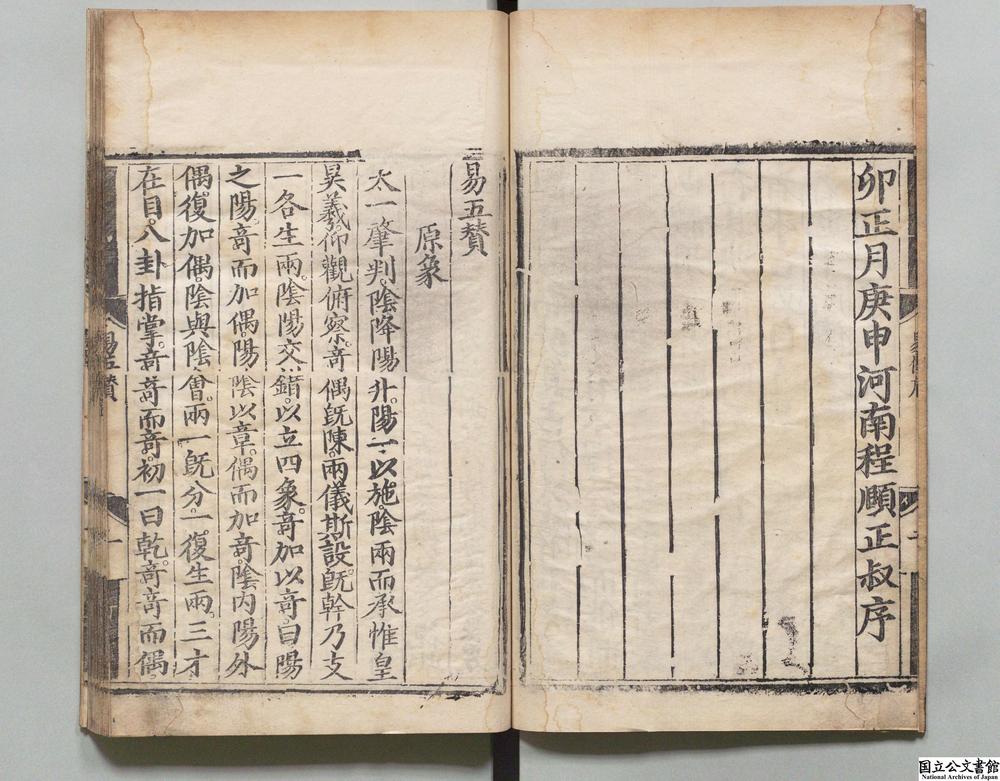 卯正月庚申河南程頤正叔序
易五贊
原象
太一肇判。陰降陽升。陽一以施。陰兩而承。惟皇
昊羲。仰觀俯察。竒偶旣陳。兩儀斯設。旣幹乃支
一各生兩。陰陽交錯。以立四象。竒加以竒。曰陽
之陽。竒而加偶。陽陰以章。偶而加竒。陰內陽外
偶復加偶。陰與陰會。兩一旣分。一復生兩。三才
在目。八卦指掌。竒竒而竒。初一曰乾。竒竒而偶。
易五贊
一
国立公文書館
National Archives of Japan